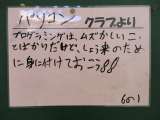 パソコン クラブより
プログラミングは、ムズかしいこ
とばかりだけど、しょ来のため
に身に付けておこう88
60-1